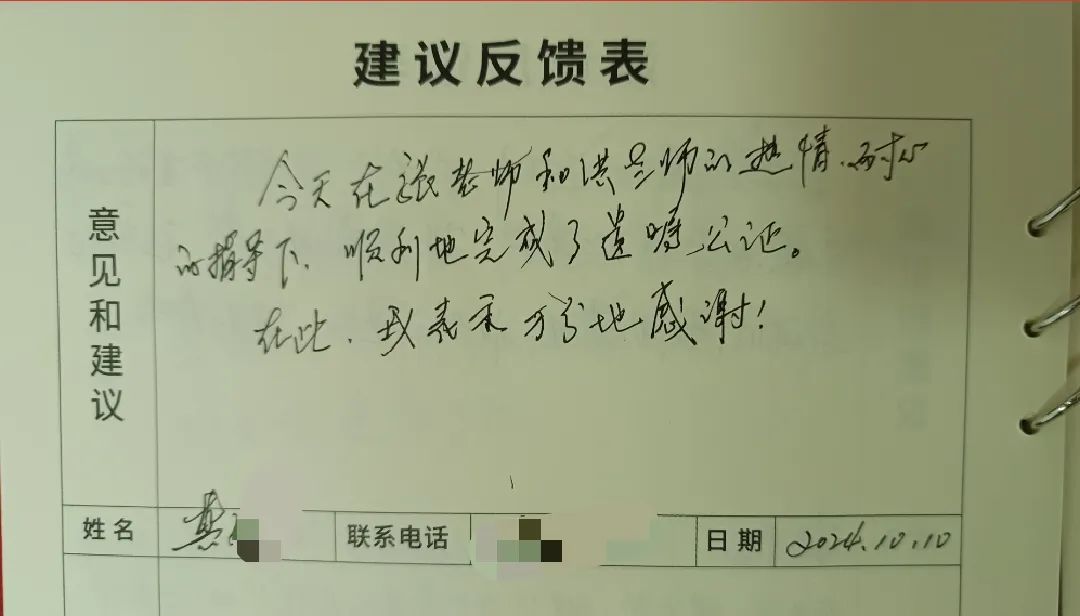 建议反馈表
意见和建议
今天在张老师和洪老师的热情、耐心
的指导下、顺利地完成了遗嘱公证。
在此、我表示万分地感谢!
姓名 黄 联系电话 日期 2024.10.10